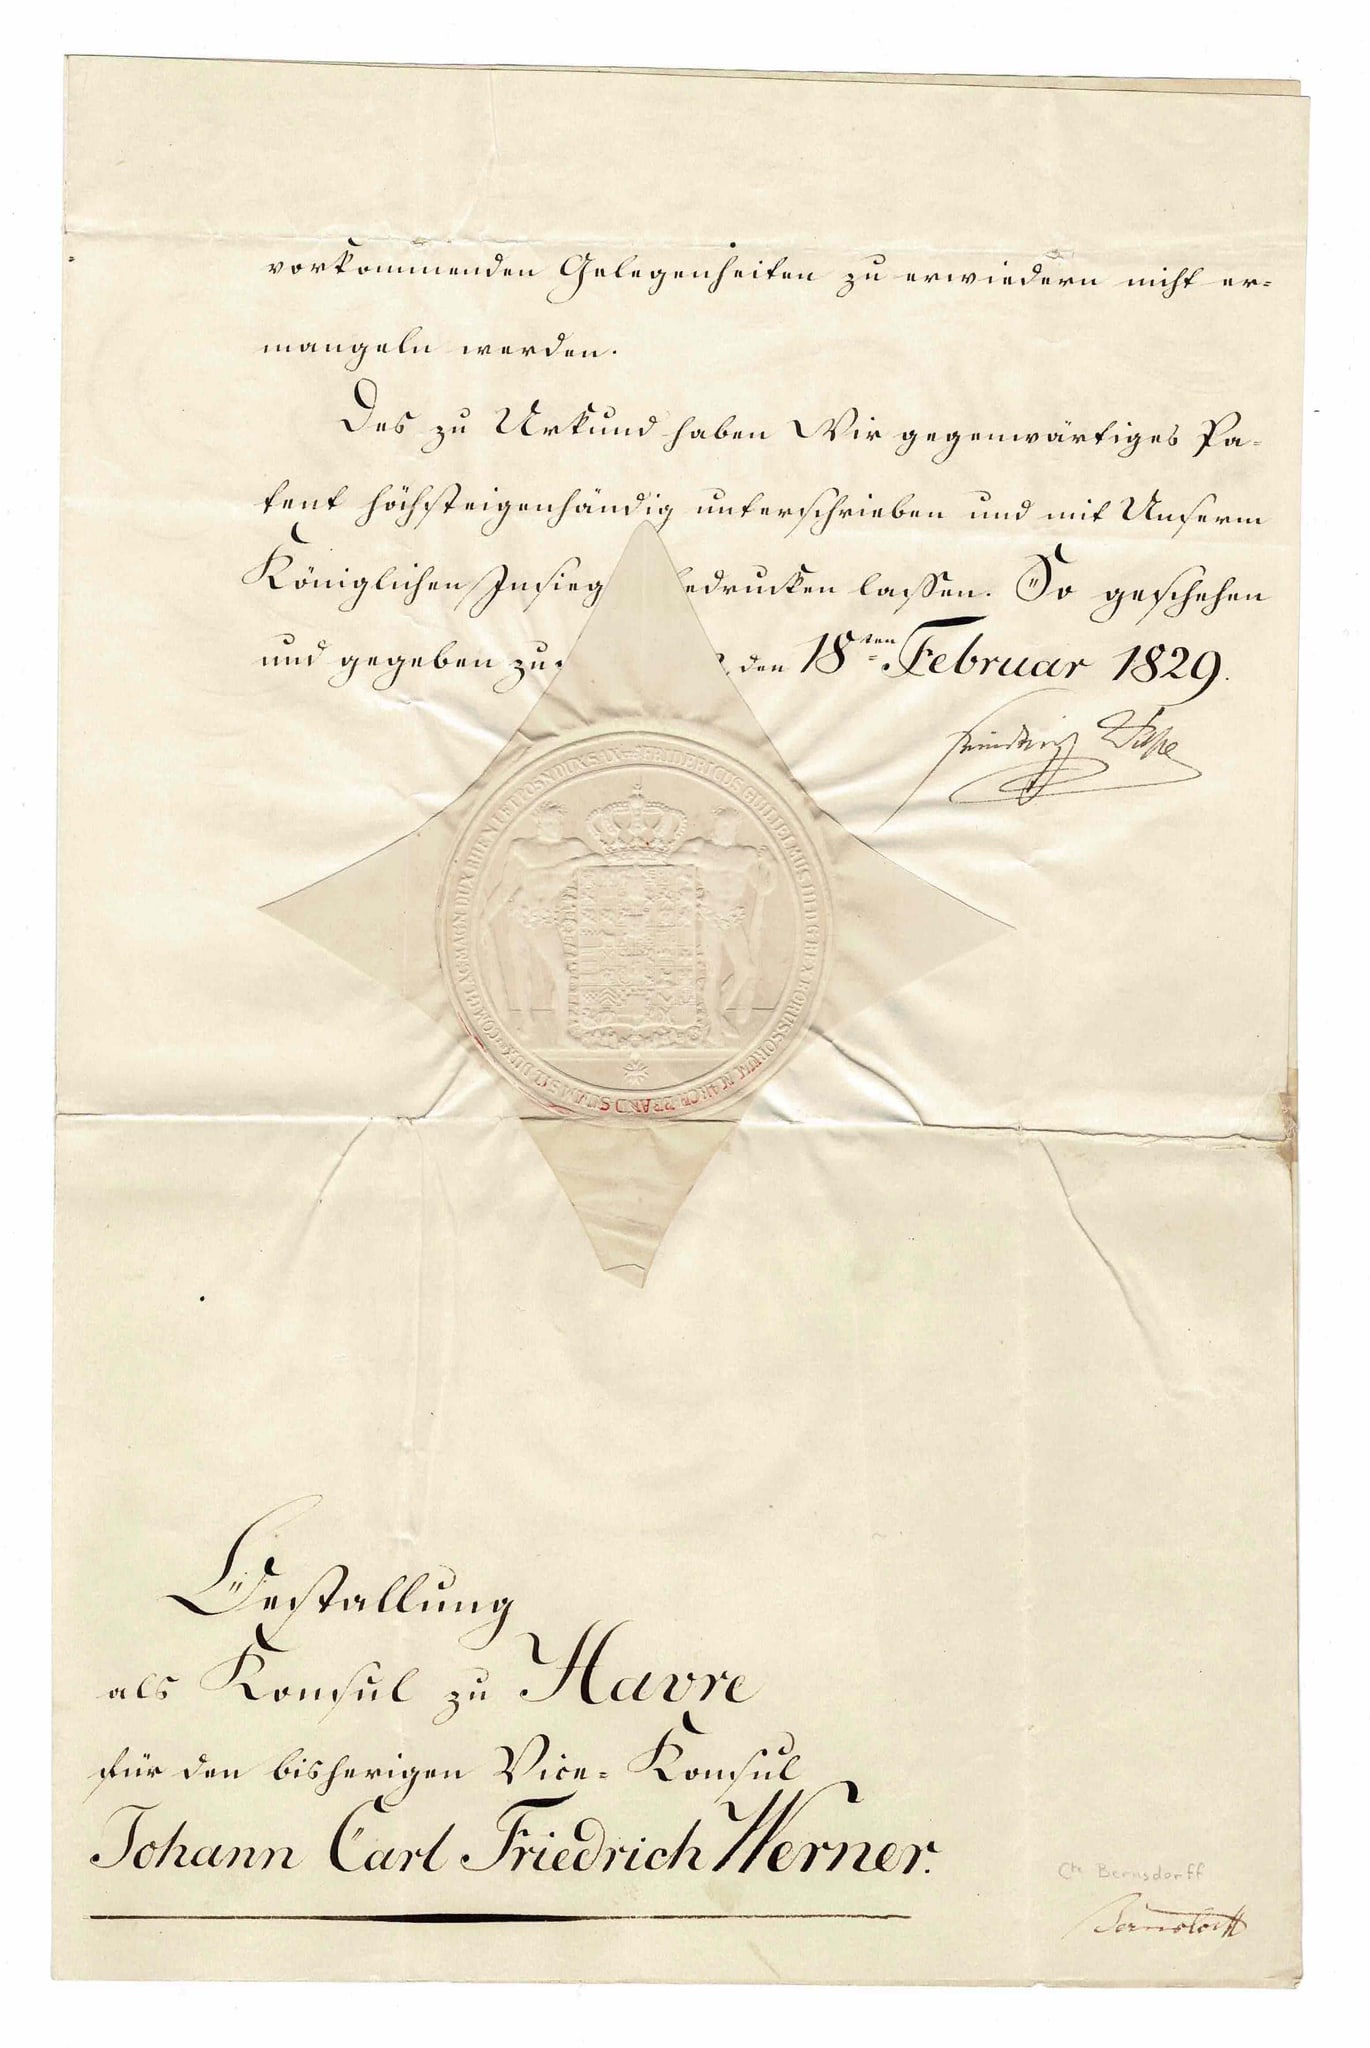 vorkommenden Gelegenheiten zu erwiedern nicht er=
mangeln werden.
Des zu Urkund haben Wir gegenwärtiges Pa-
tent höchsteigenhändig unterschrieben und mit Unserm
Königlichen Insieg edrucken lassen. So geschehen
und gegeben zu den 18ten Februar 1829.
Friedrich Wilhelm
FRIDERICUS GUILIELMUS III D G REX BORUSSORUM MARCH BRAND SUP DUX
Bestallung
als Konsul zu Havre
für den bisherigen Vice= Konsul
Johann Carl Friedrich Werner.
Cte Bernsdorff
Bernstorff